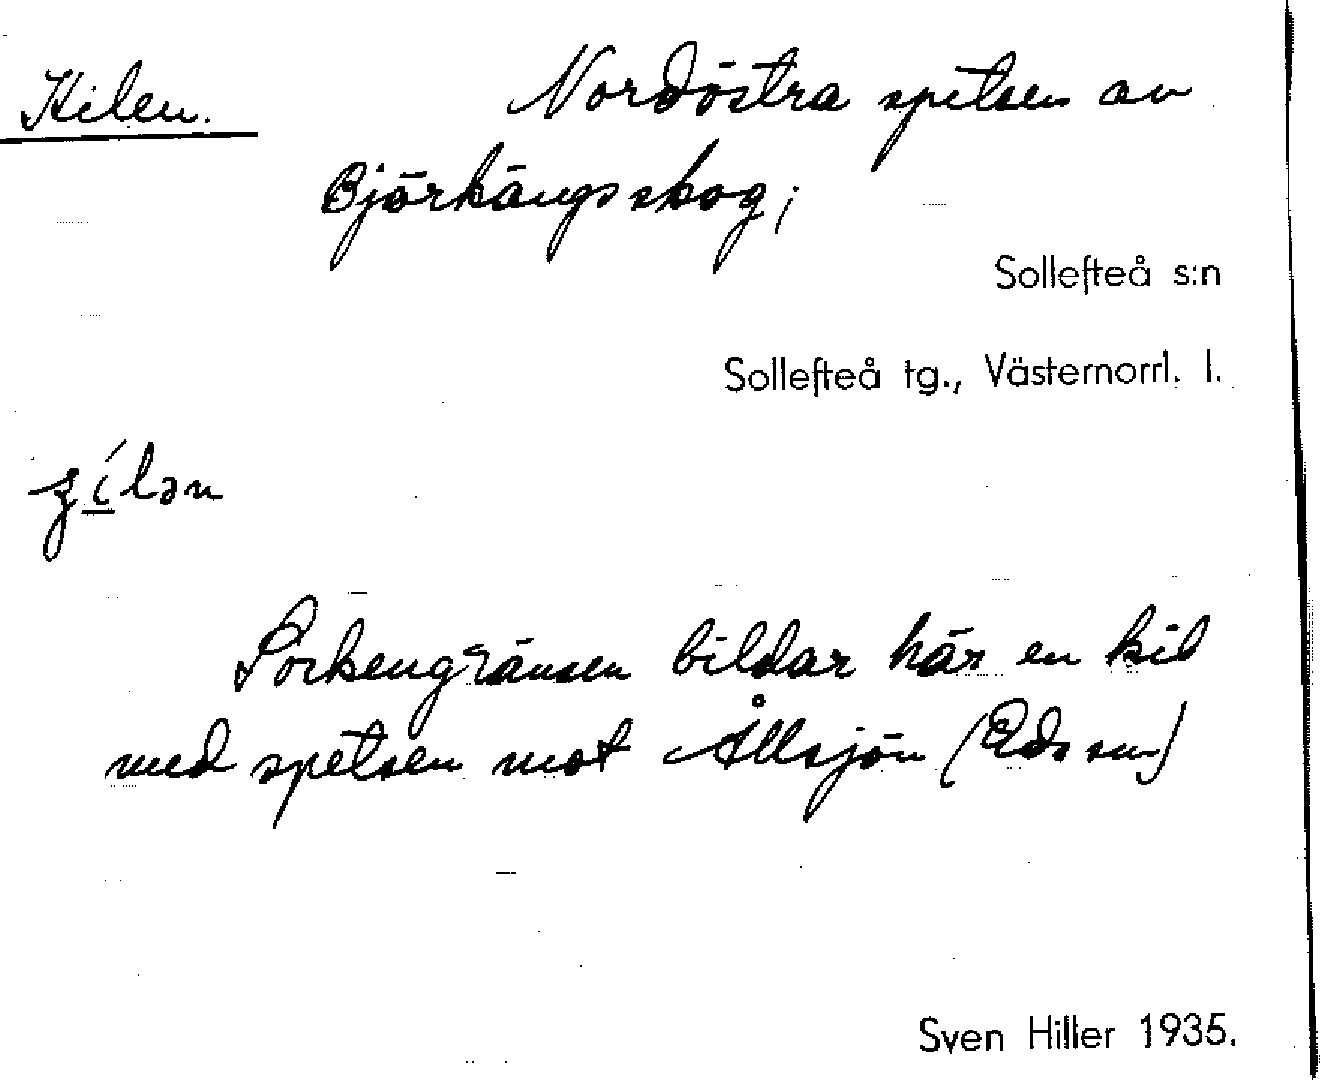 Kilen. Nordöstra spetsen av
Björkängsskog;
Sollefteå s:n
Sollefteå tg., Västernorrl. l.
Sockengränsen bildar här en kil
med spetsen mot Ållsjön (Eds sn)
Sven Hiller 1935.